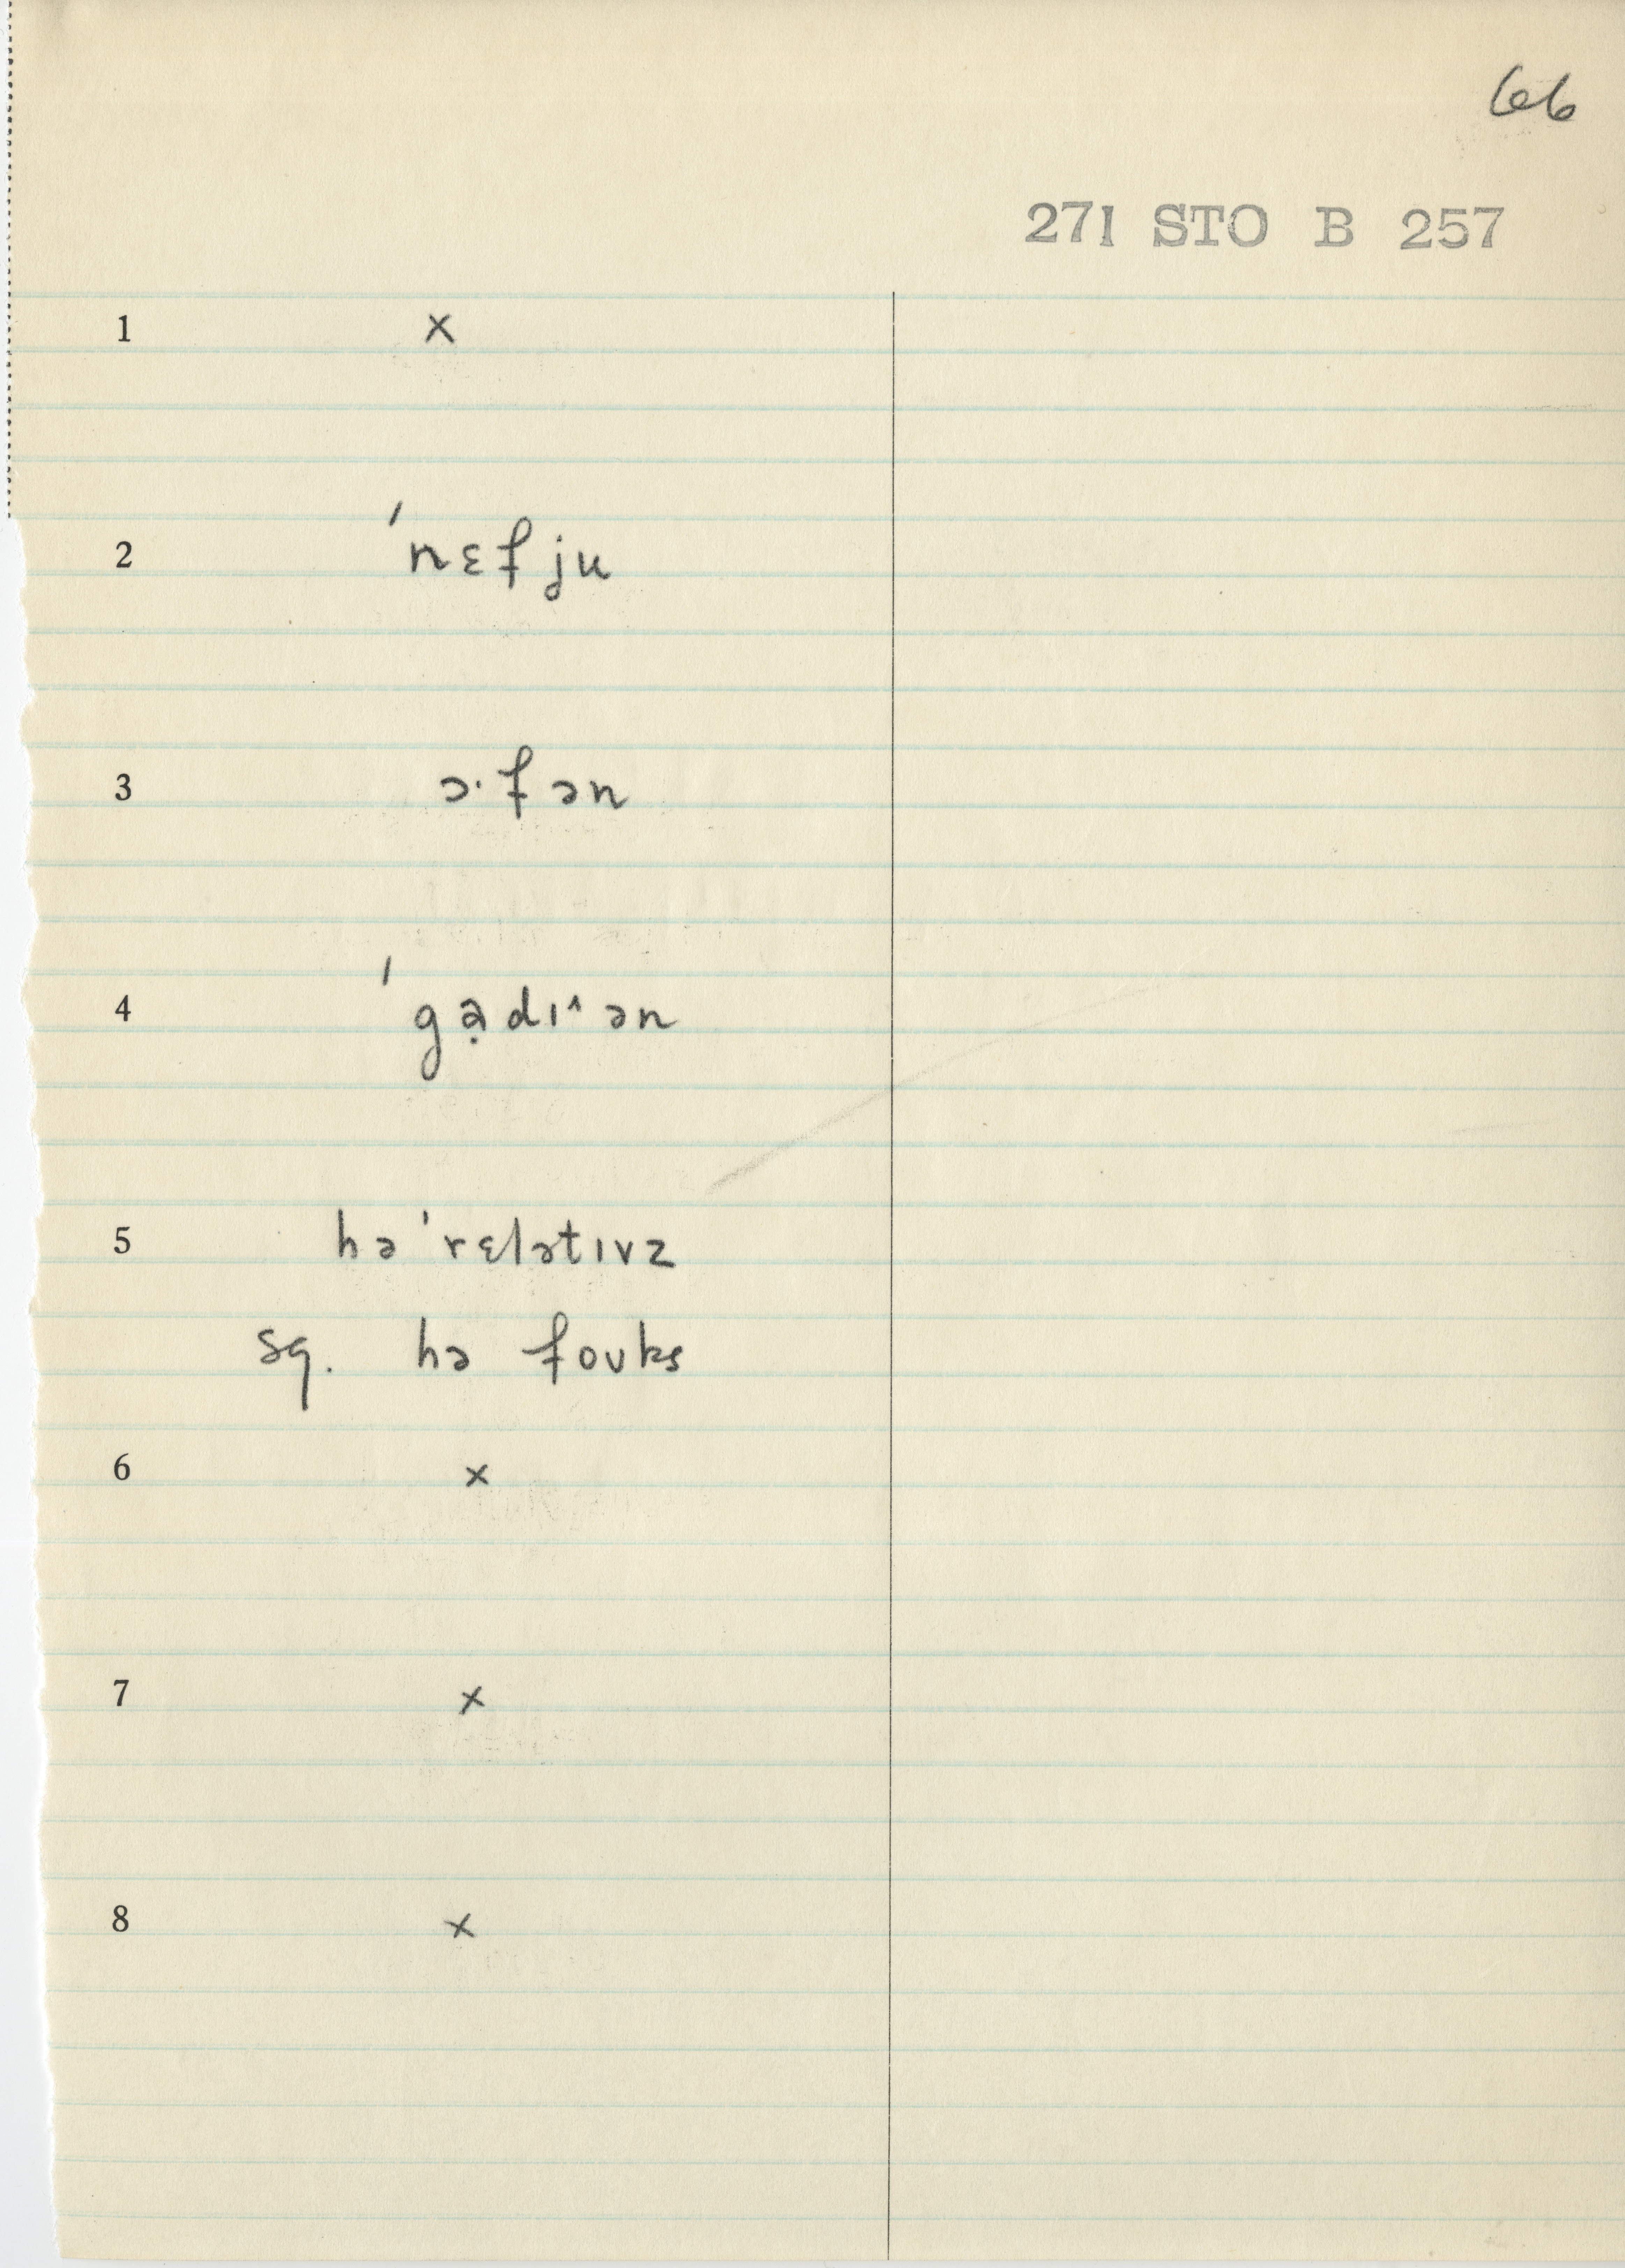 66
271 STO B 257
1 ×
2 ˈnɛfju
3 ɔ·fən
4 ˈgạdɪ^ ən
5 hə ˈrɛlətɪvz
sq. hə foʊks
6 ×
7 ×
8 ×